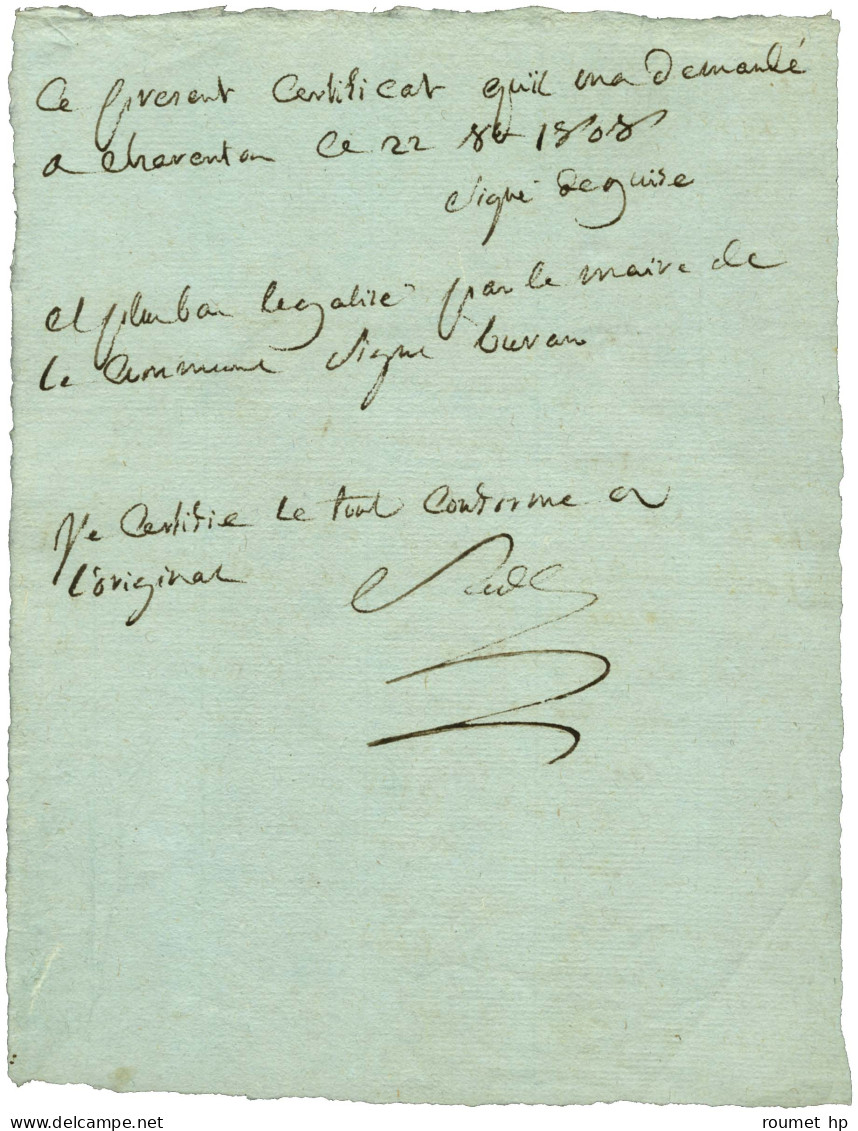 Ce present Certificat qu'il ma demandé
a charenton ce 22 8bre 1808
signé deguise
et plus bas legalisé par le maire de
la commune signé
Je Certifie le tout conforme a
l'original
Sade
www.delcampe.net
roumet hp